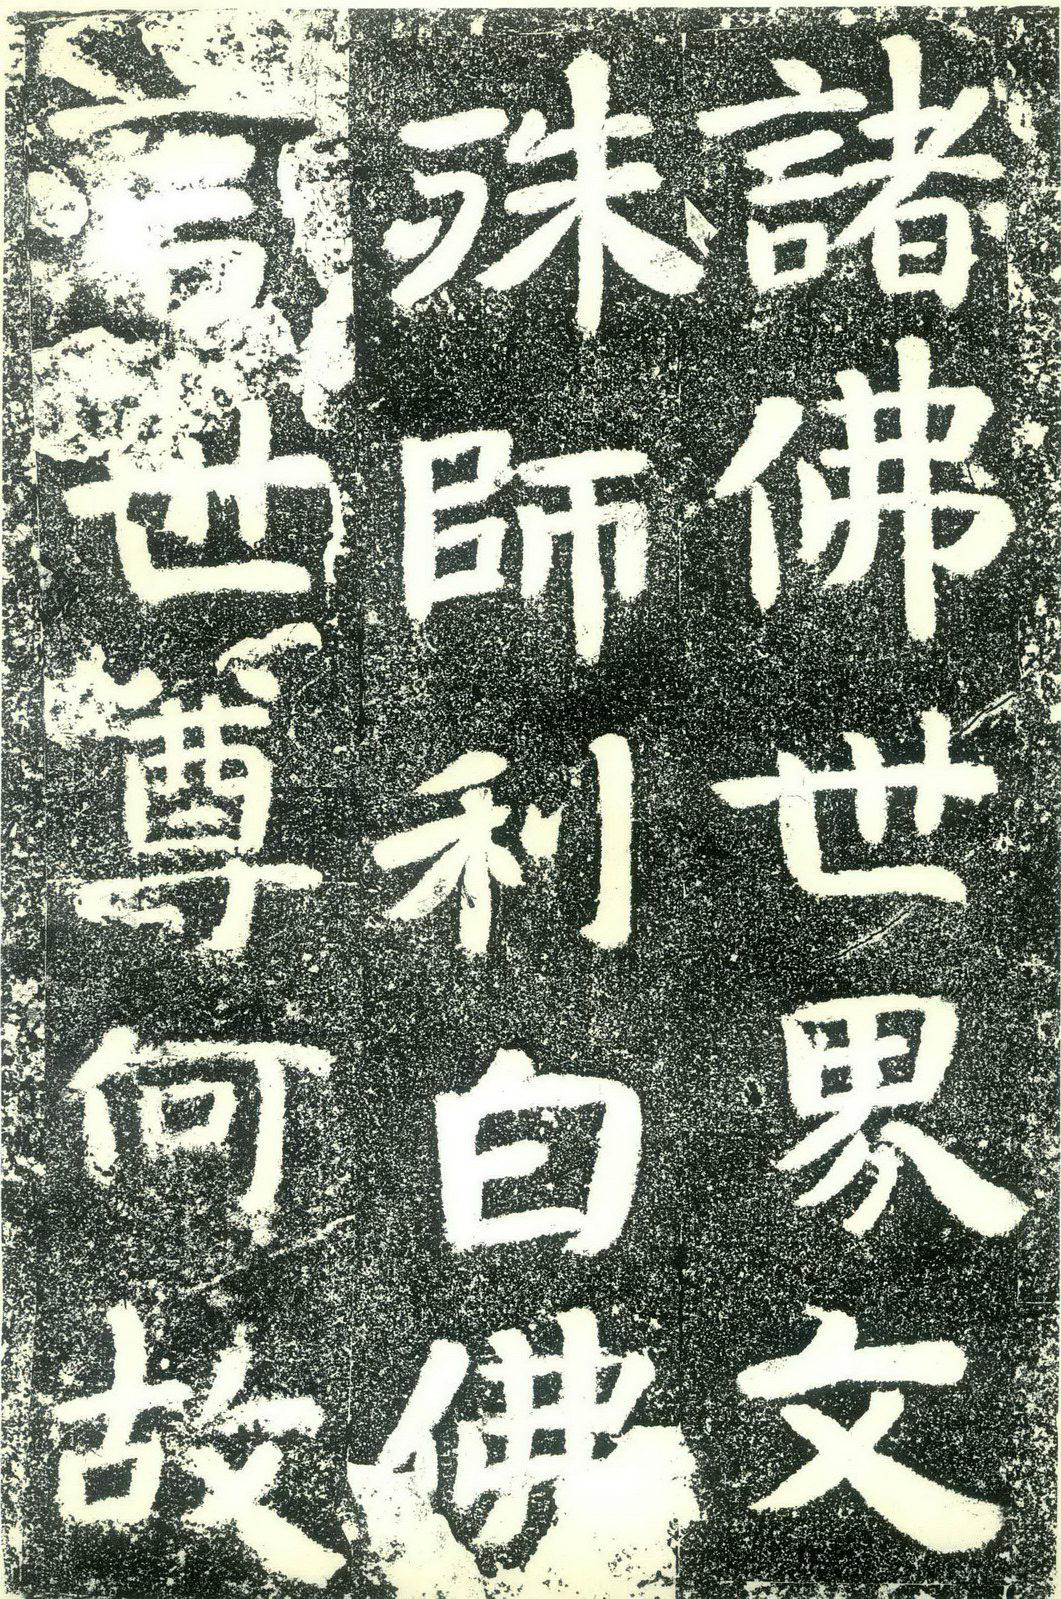 諸佛世界文
殊師利白佛
言世尊何故